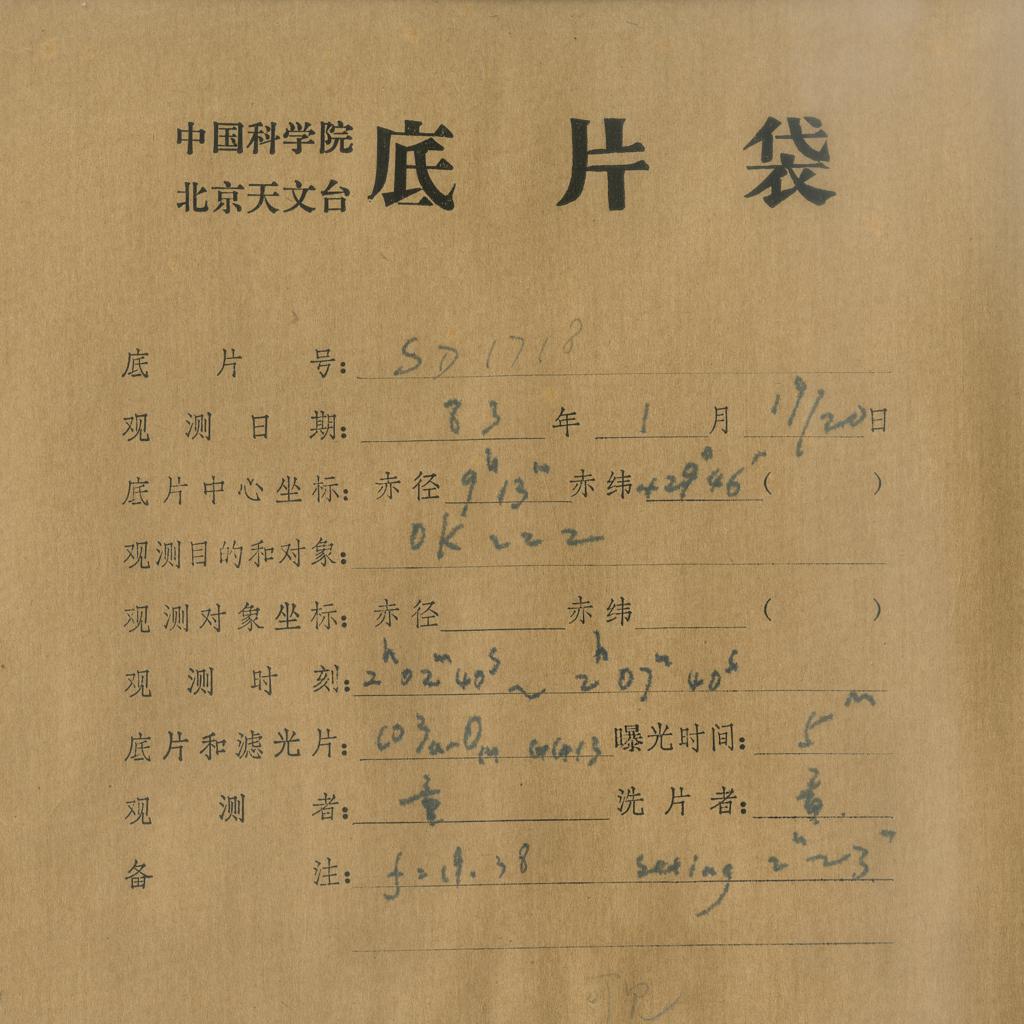 中国科学院
北京天文台
底片袋
底片号: SD 1718
观测日期: 83年1月19/20日
底片中心坐标: 赤径 9h 13m 赤纬 +29°46′ ( )
观测目的和对象: OK 222
观测对象坐标: 赤径 赤纬 ( )
观测时刻: 2h 02m 40s ~ 2h 07m 40s
底片和滤光片: 曝光时间: 5m
观测者: 董 洗片者: 董
备注: f=19.38 seeing 2"~3"